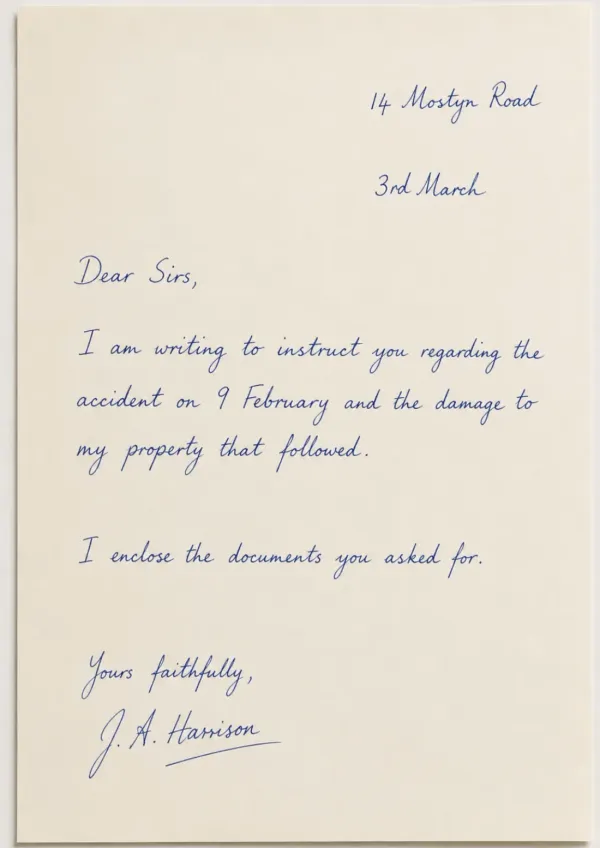 14 Mostyn Road
3rd March
Dear Sirs,
I am writing to instruct you regarding the
accident on 9 February and the damage to
my property that followed.
I enclose the documents you asked for.
Yours faithfully,
J. A. Harrison